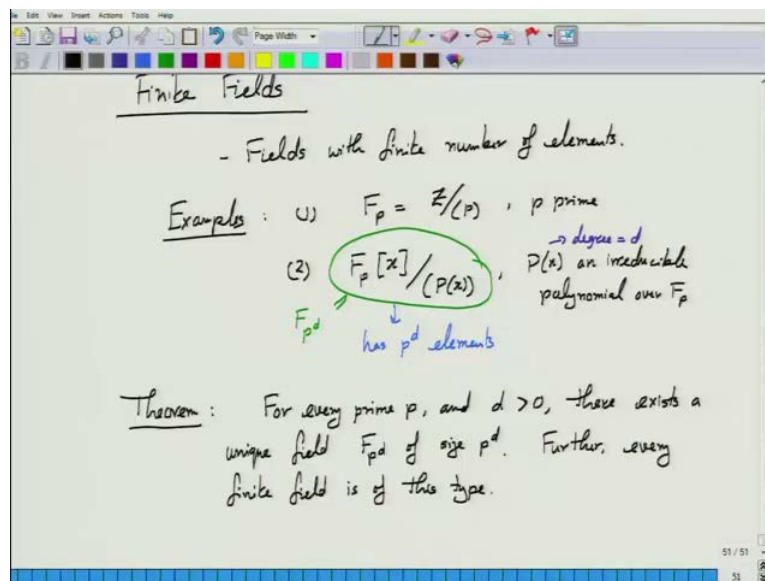 File Edit View Insert Actions Tools Help
Page Width
B I
Finite Fields
- Fields with finite number of elements.
Examples : (1) F_p = Z/(p) , p prime
→ degree = d
(2) F_p [x]/(P(x)) , P(x) an irreducible
polynomial over F_p
F_{p^d}
has p^d elements
Theorem : For every prime p, and d > 0, there exists a
unique field F_{p^d} of size p^d. Further, every
finite field is of this type.
51 / 51
51